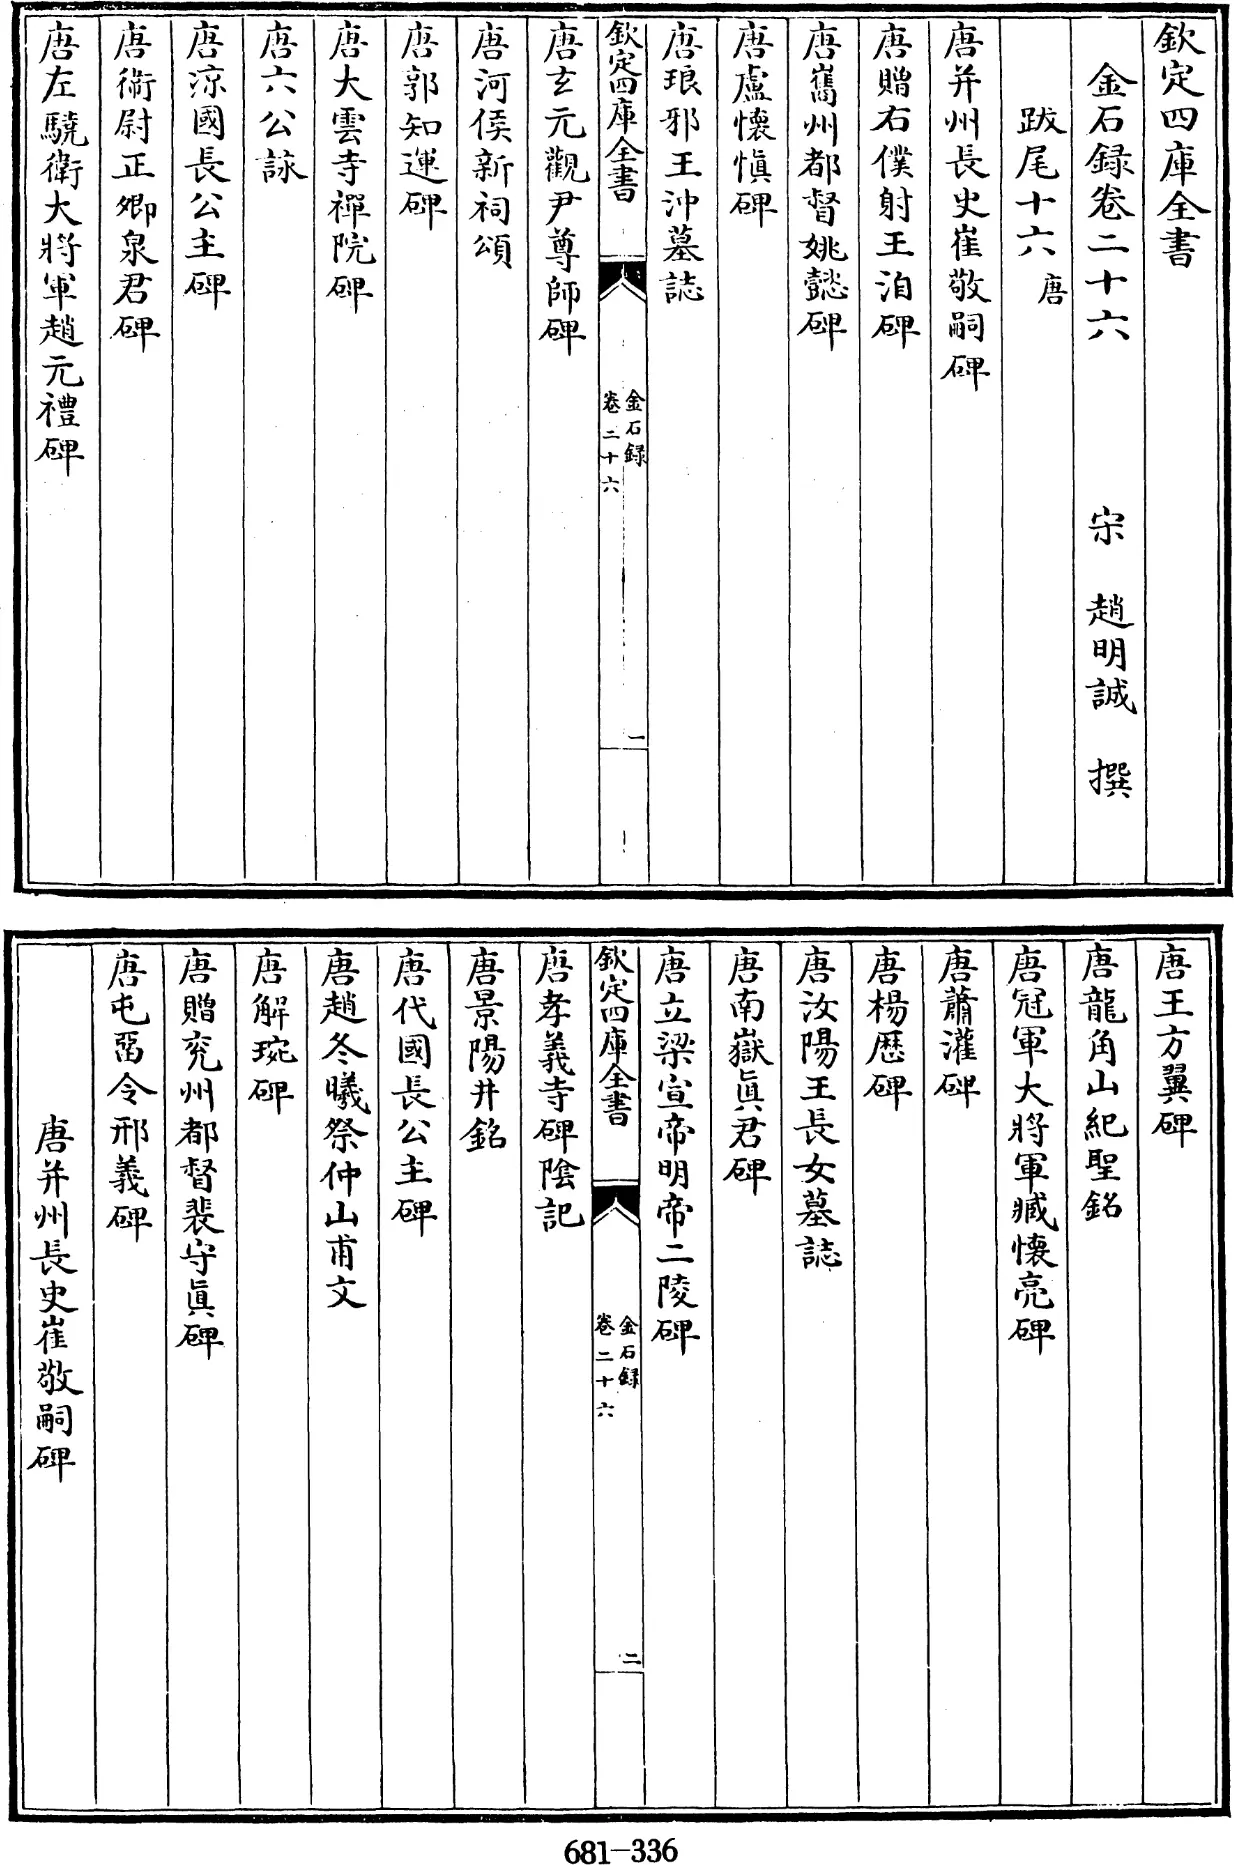 欽定四庫全書
金石録卷二十六　宋　趙明誠　撰
跋尾十六　唐
唐并州長史崔敬嗣碑
唐贈右僕射王洎碑
唐巂州都督姚懿碑
唐盧懷慎碑
唐琅邪王沖墓誌
欽定四庫全書
金石録
卷二十六
一
唐玄元觀尹尊師碑
唐河侯新祠頌
唐郭知運碑
唐大雲寺禪院碑
唐六公詠
唐涼國長公主碑
唐衛尉正卿泉君碑
唐左驍衛大將軍趙元禮碑
唐王方翼碑
唐龍角山紀聖銘
唐冠軍大將軍臧懷亮碑
唐蕭灌碑
唐楊歴碑
唐汝陽王長女墓誌
唐南嶽真君碑
唐立梁宣帝明帝二陵碑
欽定四庫全書
金石録
卷二十六
二
唐孝義寺碑陰記
唐景陽井銘
唐代國長公主碑
唐趙冬曦祭仲山甫文
唐解琬碑
唐贈兖州都督裴守真碑
唐屯留令邢義碑
唐并州長史崔敬嗣碑
681-336